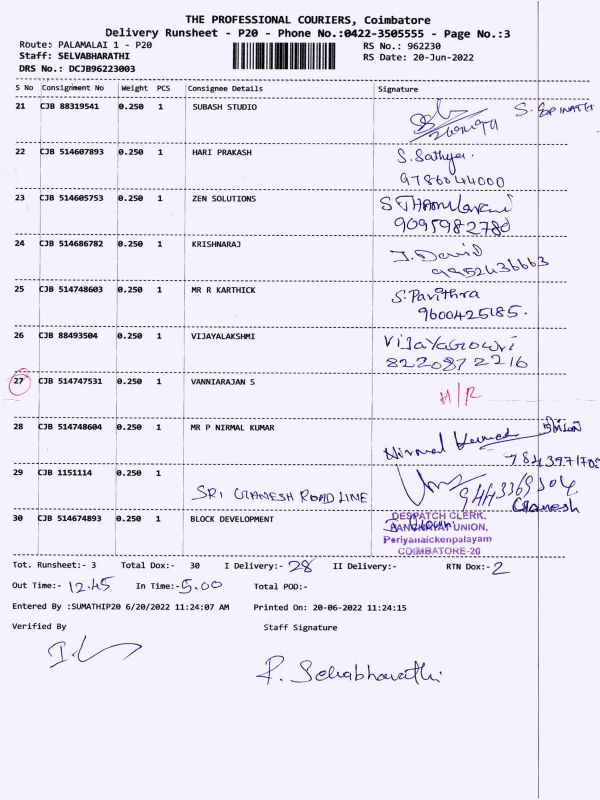 THE PROFESSIONAL COURIERS, Coimbatore
Delivery Runsheet - P20 - Phone No.:0422-3505555 - Page No.:3
Route: PALAMALAI 1 - P20 RS No.: 962230
Staff: SELVABHARATHI RS Date: 20-Jun-2022
DRS No.: DCJB96223003
S No Consignment No Weight PCS Consignee Details Signature
21 CJB 88319541 0.250 1 SUBASH STUDIO S. GOPINATH
22 CJB 514607893 0.250 1 HARI PRAKASH S. Sathya
9786044000
23 CJB 514605753 0.250 1 ZEN SOLUTIONS
9095982780
24 CJB 514686782 0.250 1 KRISHNARAJ J. David
9952436663
25 CJB 514748603 0.250 1 MR R KARTHICK S. Pavithra
9600425185.
26 CJB 88493504 0.250 1 VIJAYALAKSHMI VIJAYAGOWRI
8220872216
27 CJB 514747531 0.250 1 VANNIARAJAN S H/R
28 CJB 514748604 0.250 1 MR P NIRMAL KUMAR Nirmal Kumar
29 CJB 1151114 0.250 1
SRI GANESH ROADLINE 9443369304
Ganesh
30 CJB 514674893 0.250 1 BLOCK DEVELOPMENT DESPATCH CLERK,
PANCHAYAT UNION,
Periyanaickenpalayam
COIMBATORE-20
Tot. Runsheet:- 3 Total Dox:- 30 I Delivery:- 28 II Delivery:- RTN Dox:- 2
Out Time:- 12.45 In Time:- 5.00 Total POD:-
Entered By :SUMATHIP20 6/20/2022 11:24:07 AM Printed On: 20-06-2022 11:24:15
Verified By Staff Signature
P. Selvabharathi